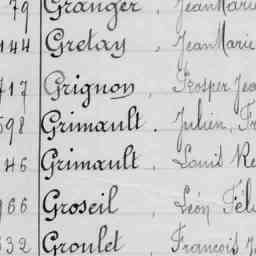 79 Granger, Jean Marie
144 Gretay, Jean Marie
717 Grignon, Prosper Jea
598 Grimault. Julien, Fr
146 Grimault, Louis Re
966 Groseil, Léon Féli
632 Groulet, François J